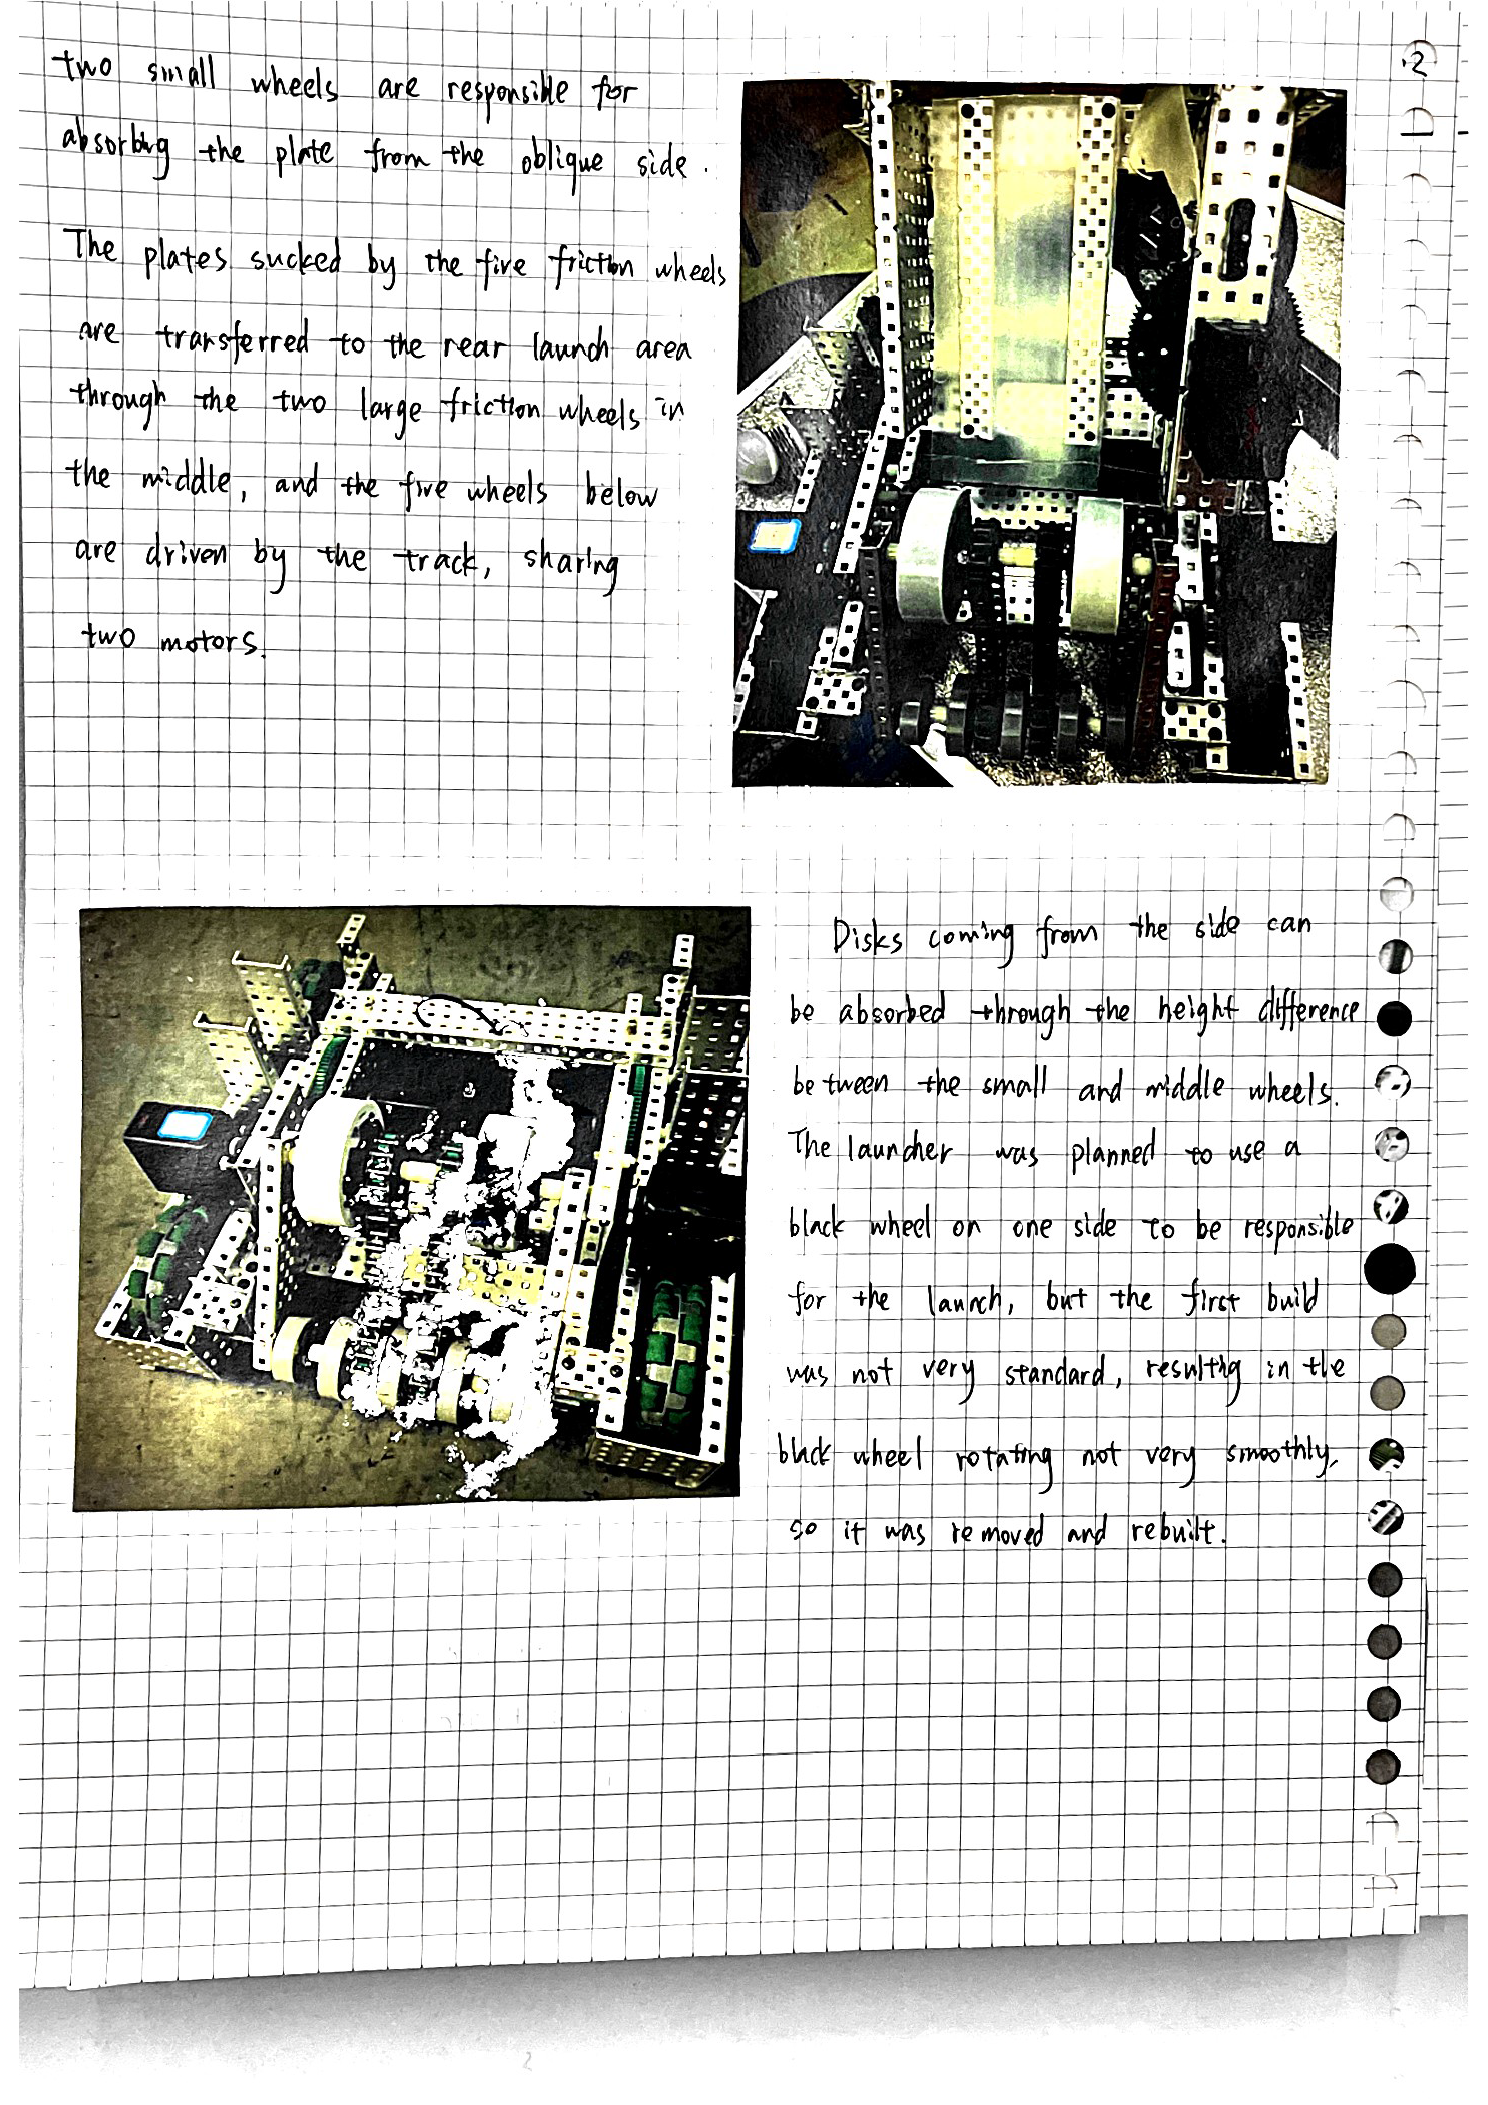 2
two small wheels are responsible for
absorbing the plate from the oblique side.
The plates sucked by the five friction wheels
are transferred to the rear launch area
through the two large friction wheels in
the middle, and the five wheels below
are driven by the track, sharing
two motors.
Disks coming from the side can
be absorbed through the height difference
between the small and middle wheels.
The launcher was planned to use a
black wheel on one side to be responsible
for the launch, but the first build
was not very standard, resulting in the
black wheel rotating not very smoothly,
so it was removed and rebuilt.